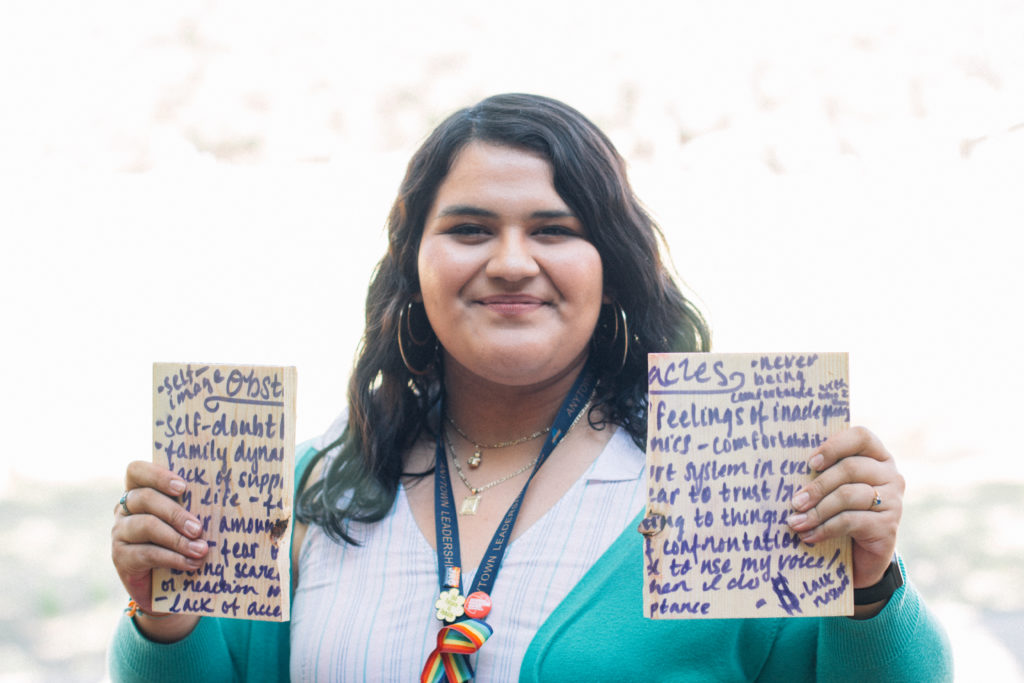 -self-
image
Obst
-self-doubt/
-family dyna
lack of supp
my life -
amoun
-fear
being scare
or reaction
-lack of acce
acles
-never
being
comfortable with
feelings of inadequacy
mics -comfortabili
ort system in eve
ear to trust/
ting to things
f confrontation
to use my voice/
when I do
ptance
- $
-lack of
ANYTOWN LEADERSH
YTOWN LEADERS